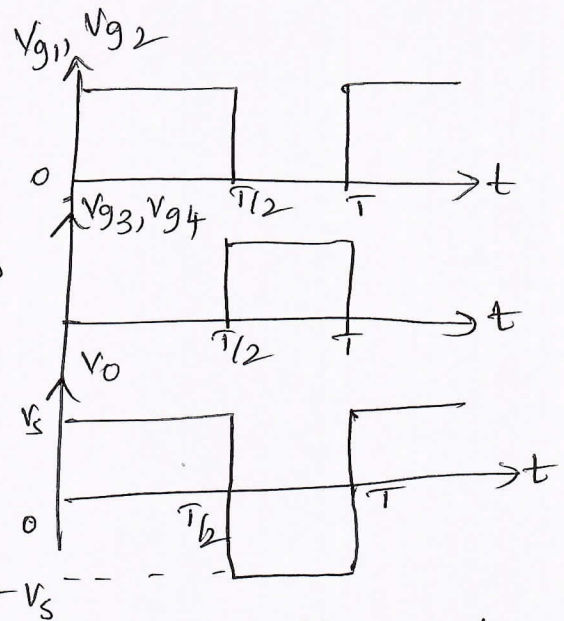 Vg1, Vg2
0
T/2
T
t
Vg3, Vg4
T/2
T
t
V0
Vs
0
T/2
T
t
-Vs